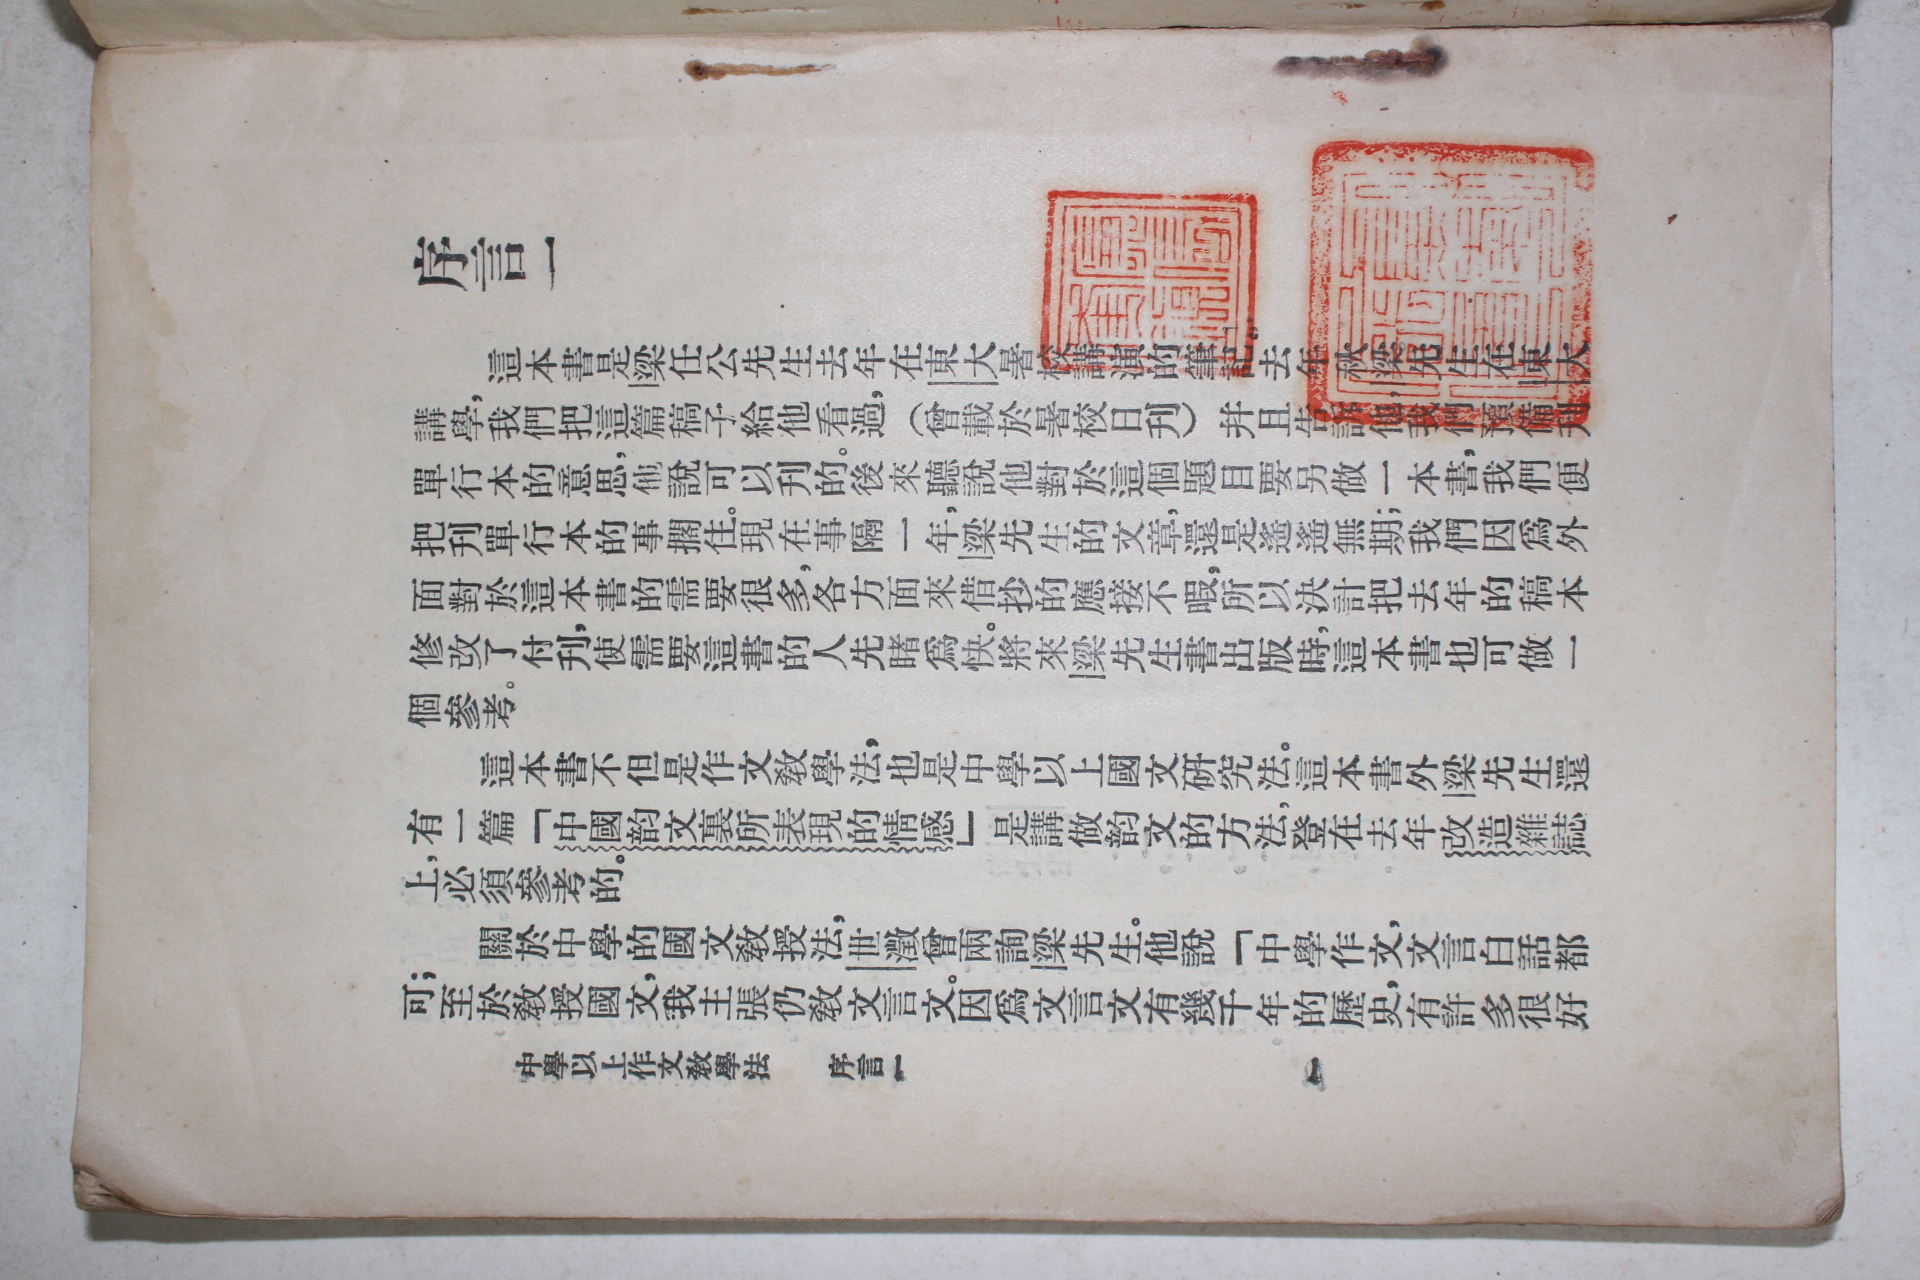 序言一
這本書是梁任公先生去年在東大暑校講演的筆記。去年秋，梁先生在東大
講學，我們把這篇稿子給他看過，（曾載於暑校日刊）幷且告訴他，我們預備刊
單行本的意思，他說可以刊的。後來聽說他對於這個題目要另做一本書，我們便
把刊單行本的事擱住。現在事隔一年，梁先生的文章，還是遙遙無期；我們因爲外
面對於這本書的需要很多，各方面來借抄的應接不暇，所以決計把去年的稿本
修改了付刊，使需要這書的人先睹爲快。將來梁先生書出版時，這本書也可做一
個參考。
這本書不但是作文敎學法，也是中學以上國文研究法。這本書外梁先生還
有一篇「中國韵文裏所表現的情感」是講做韵文的方法，登在去年改造雜誌
上，必須參考的。
關於中學的國文敎授法，世瀓曾兩詢梁先生。他說「中學作文，文言白話都
可；至於敎授國文，我主張仍敎文言文。因爲文言文有幾千年的歷史，有許多很好
中學以上作文敎學法　序言一　一